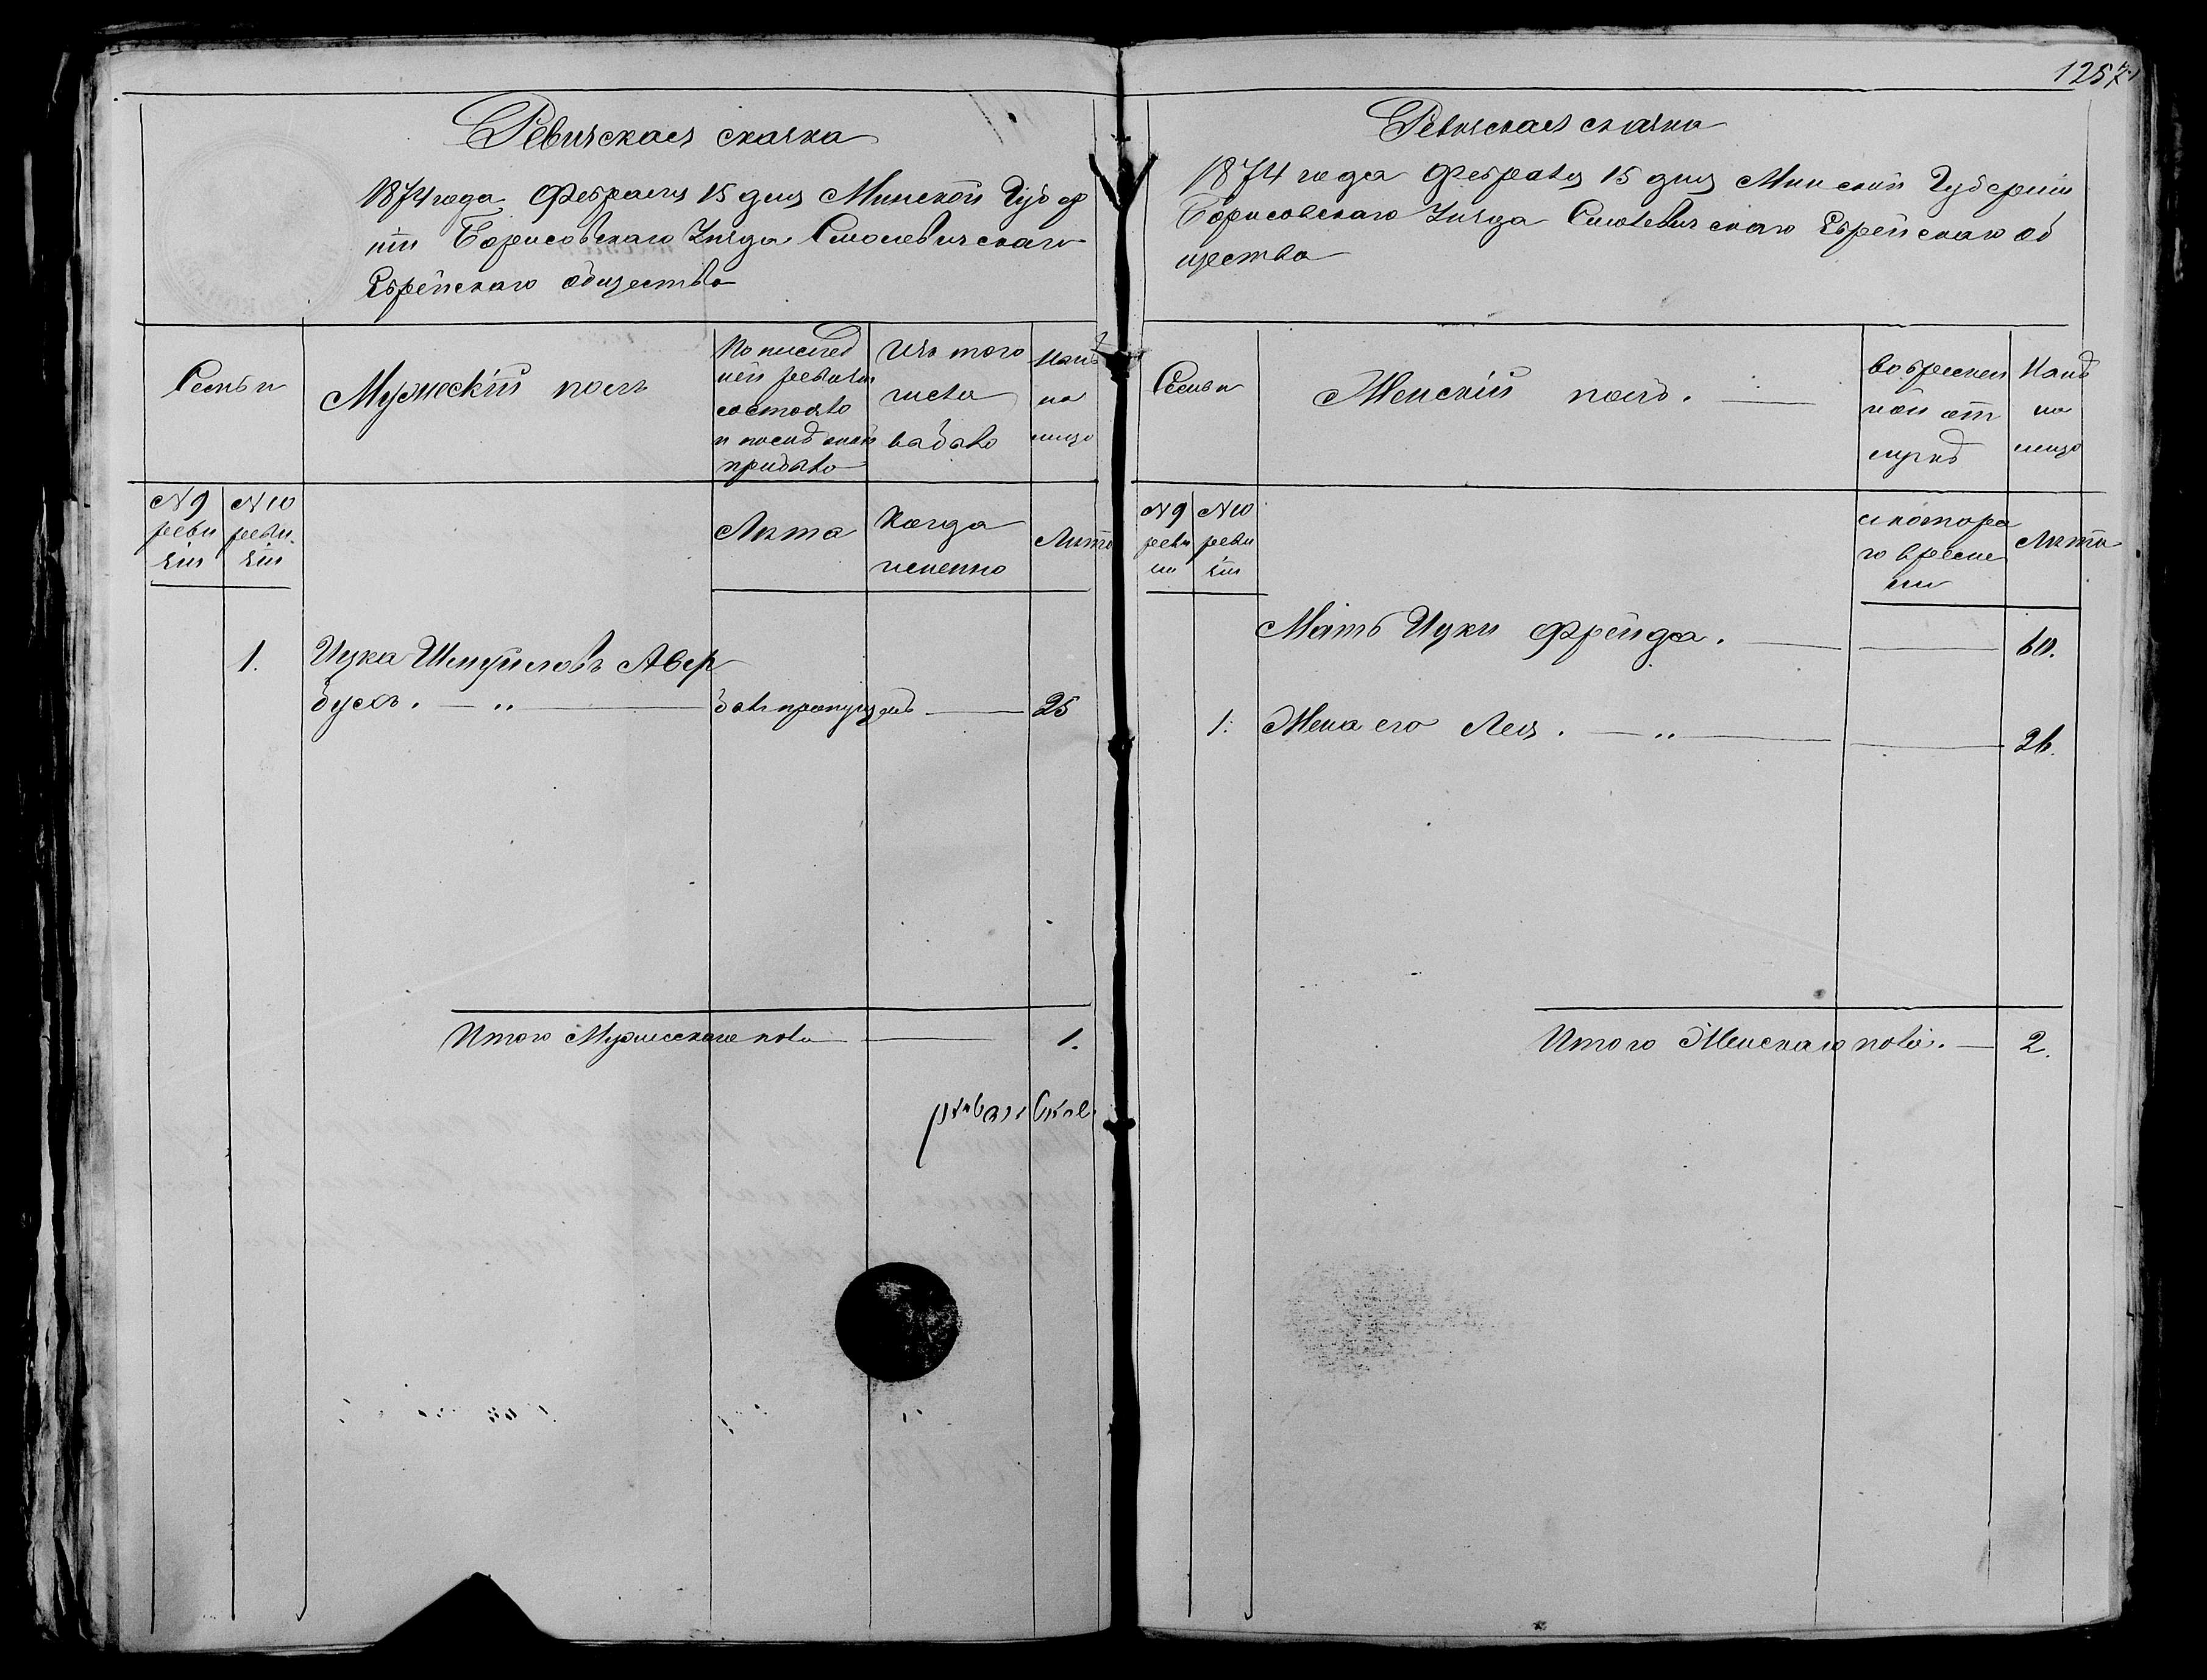 Ревизская сказка
1874 года Февраля 15 дня Минской Губер
нiи Борисовскаго Уѣзда Смолевичскаго
Еврейскаго общества
Семьи
Мужескiй полъ
По послед
ней ревизiи
состояло
и послѣ оной
прибыло
Изъ того
числа
выбыло
Нынѣ
на
лицо
N 9
реви
зiи
N 10
реви
зiи
Лѣта
Когда
именно
Лѣта
1.
Ицка Шмуйловъ Авер
бухъ.
былъ пропущенъ
25
Итого Мужескаго пола
1.
1257
Ревизская сказка
1874 года Февраля 15 дня Минской Губернiи
Борисовскаго Уѣзда Смолевичскаго Еврейскаго об
щества
Семьи
Женскiй полъ.
Во времен
ной от
лучкѣ
Нынѣ
на
лицо
N 9
реви
зiи
N 10
реви
зiи
съ котора
го време
ни
Лѣта
Мать Ицки Фрейда.
60.
1.
Жена его Лея.
26.
Итого Женскаго пола.
2.